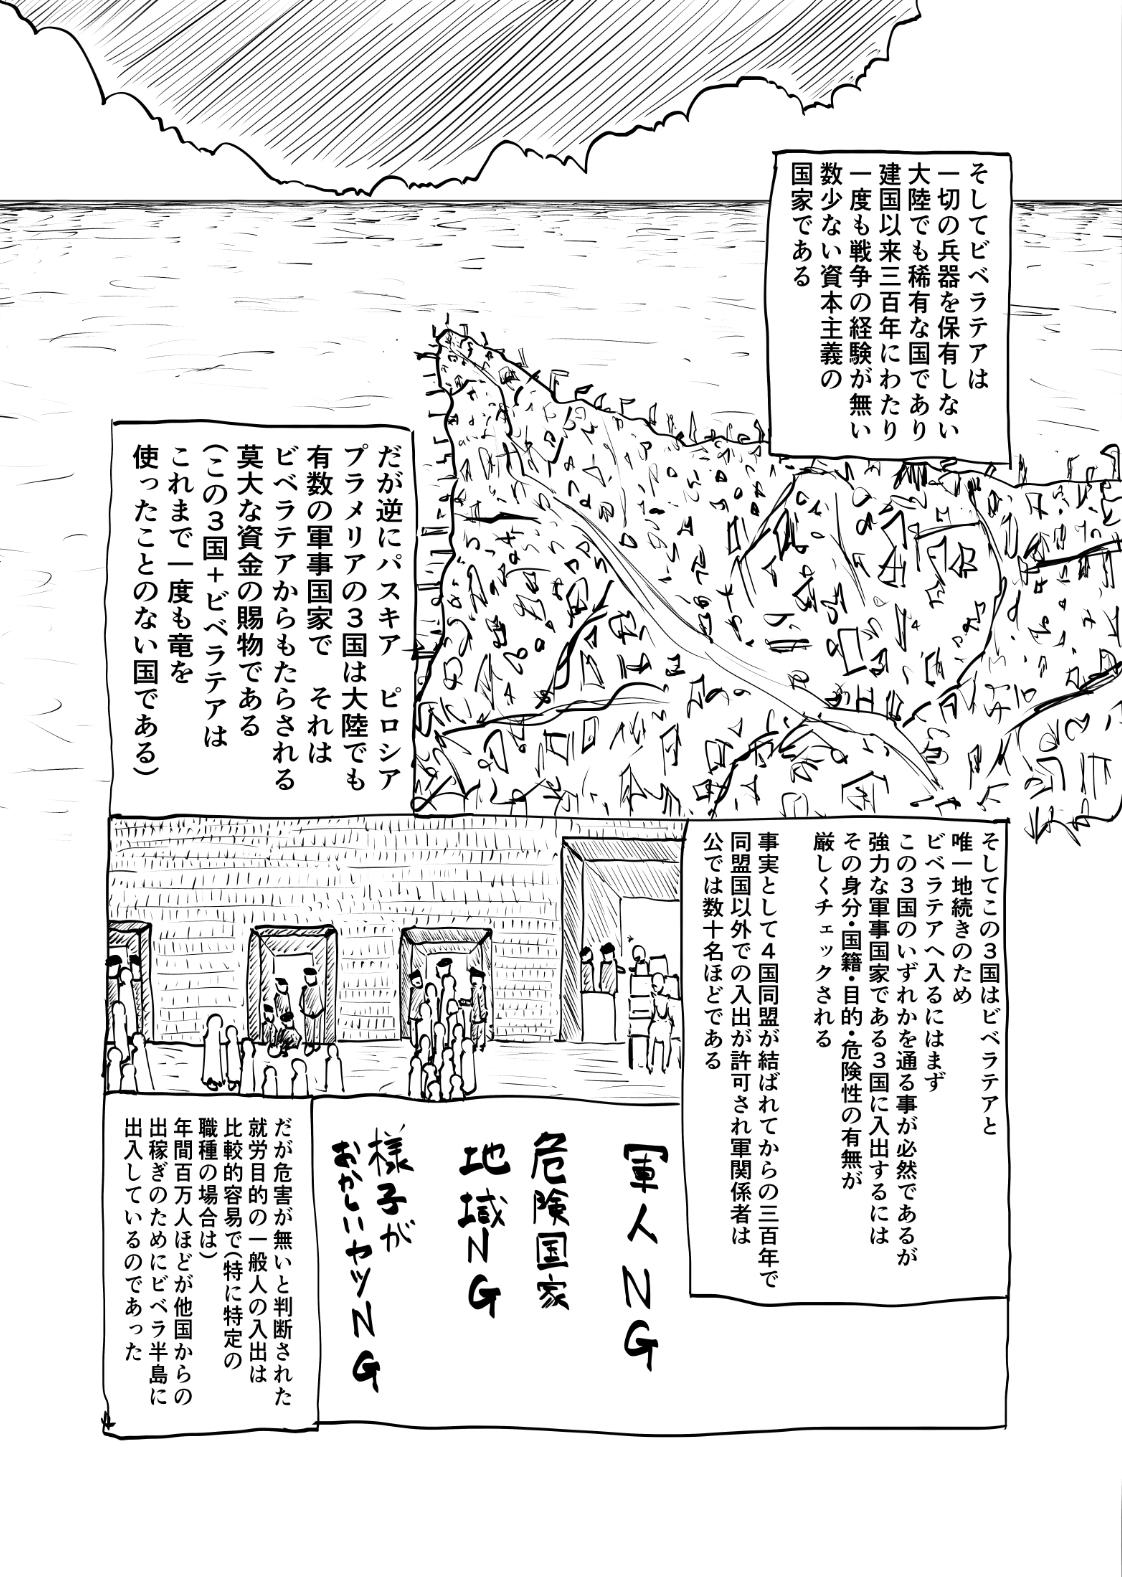 そしてビベラテアは
一切の兵器を保有しない
大陸でも稀有な国であり
建国以来三百年にわたり
一度も戦争の経験が無い
数少ない資本主義の
国家である
だが逆にパスキア　ピロシア
プラメリアの３国は大陸でも
有数の軍事国家で　それは
ビベラテアからもたらされる
莫大な資金の賜物である
(この３国＋ビベラテアは
これまで一度も竜を
使ったことのない国である)
そしてこの３国はビベラテアと
唯一地続きのため
ビベラテアへ入るにはまず
この３国のいずれかを通る事が必然であるが
強力な軍事国家である３国に入出するには
その身分・国籍・目的・危険性の有無が
厳しくチェックされる
事実として４国同盟が結ばれてからの三百年で
同盟国以外での入出が許可され軍関係者は
公では数十名ほどである
軍人NG
危険国家
地域NG
様子が
おかしいヤツNG
だが危害が無いと判断された
就労目的の一般人の入出は
比較的容易で(特に特定の
職種の場合は)
年間百万人ほどが他国からの
出稼ぎのためにビベラ半島に
出入しているのであった